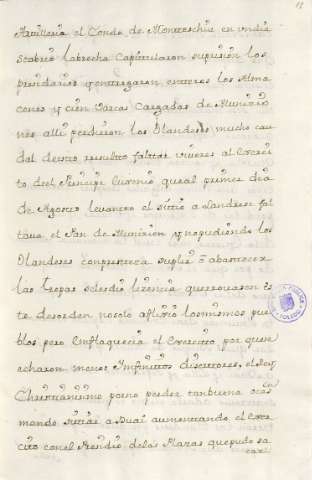 Artilleria el Conde de Monteschiu en un dia
se abrio la brecha Capitularon supusion los
presidarios y entregaron enteros los Alma
cones y cien Varcas Cargadas de Municio
nes alli perdieron los Olandeses mucho cau
dal de esto resulto faltar viveres al exerci
to del Principe Eugenio que al primer dia
de Agosto levanto el sittio a Landresi fal
tava el Pan de Municion y no pudiendo los
Olandeses con presteza suplir o abastezer
las tropas se les dio lizencia que robaron es
te desorden no solo afligio los mismos pue
blos pero enflaquecia el Exercito por que se
echaron menos Infinittos disertores, el Rey
Christianisimo por no perder tan buena ocasion
mando sittiar a Duai aumentando el Exer
cito con el Presidio de las Plazas que pudo sa
car